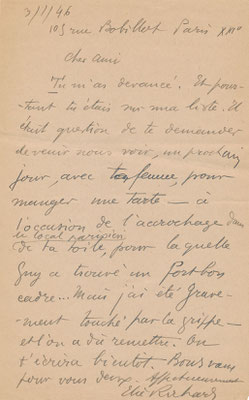 3/1/46
105 rue Bobillot Paris XIIIe
Cher ami
Tu m'as devancé. Et pour-
tant tu étais sur ma liste. Il
était question de te demander
de venir nous voir, un prochain
jour, avec ta femme, pour
manger une tarte — à
l'occasion de l'accrochage dans
le local parisien
de ta toile, pour laquelle
Guy a trouvé un fort bon
cadre... Mais j'ai été grave-
ment touché par la grippe —
et l'on a dû remettre. On
t'écrira bientôt. Bons vœux
pour vous deux. Affectueusement
Elie Richard